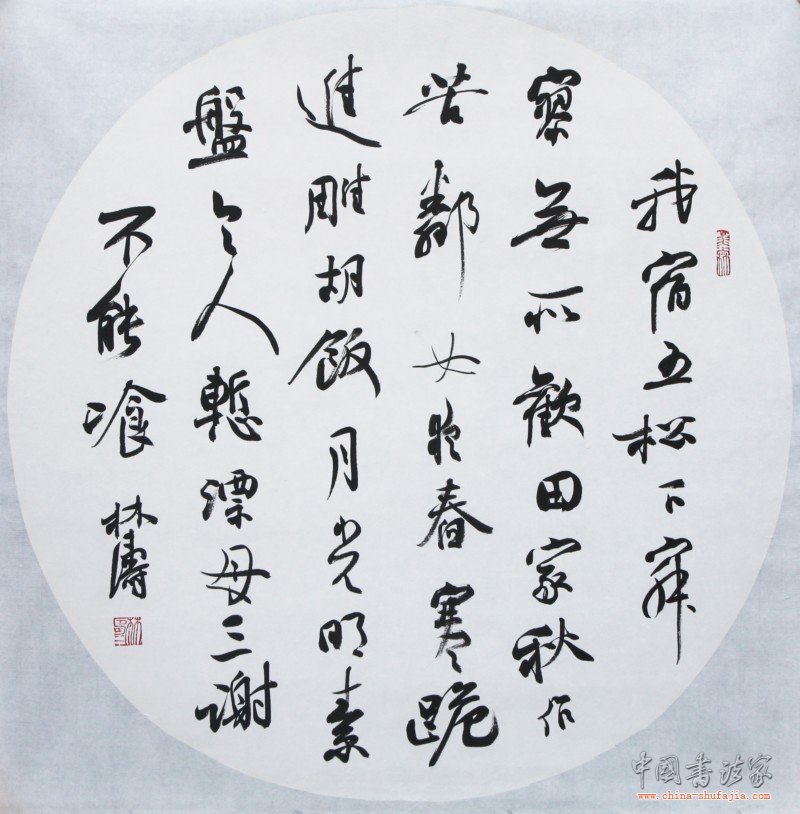 我宿五松下寂
寥無所歡田家秋作
苦鄰女夜舂寒跪
進雕胡飯月光明素
盤令人慙漂母三謝
不能飡
林濤
中國書法家
www.china-shufajia.com